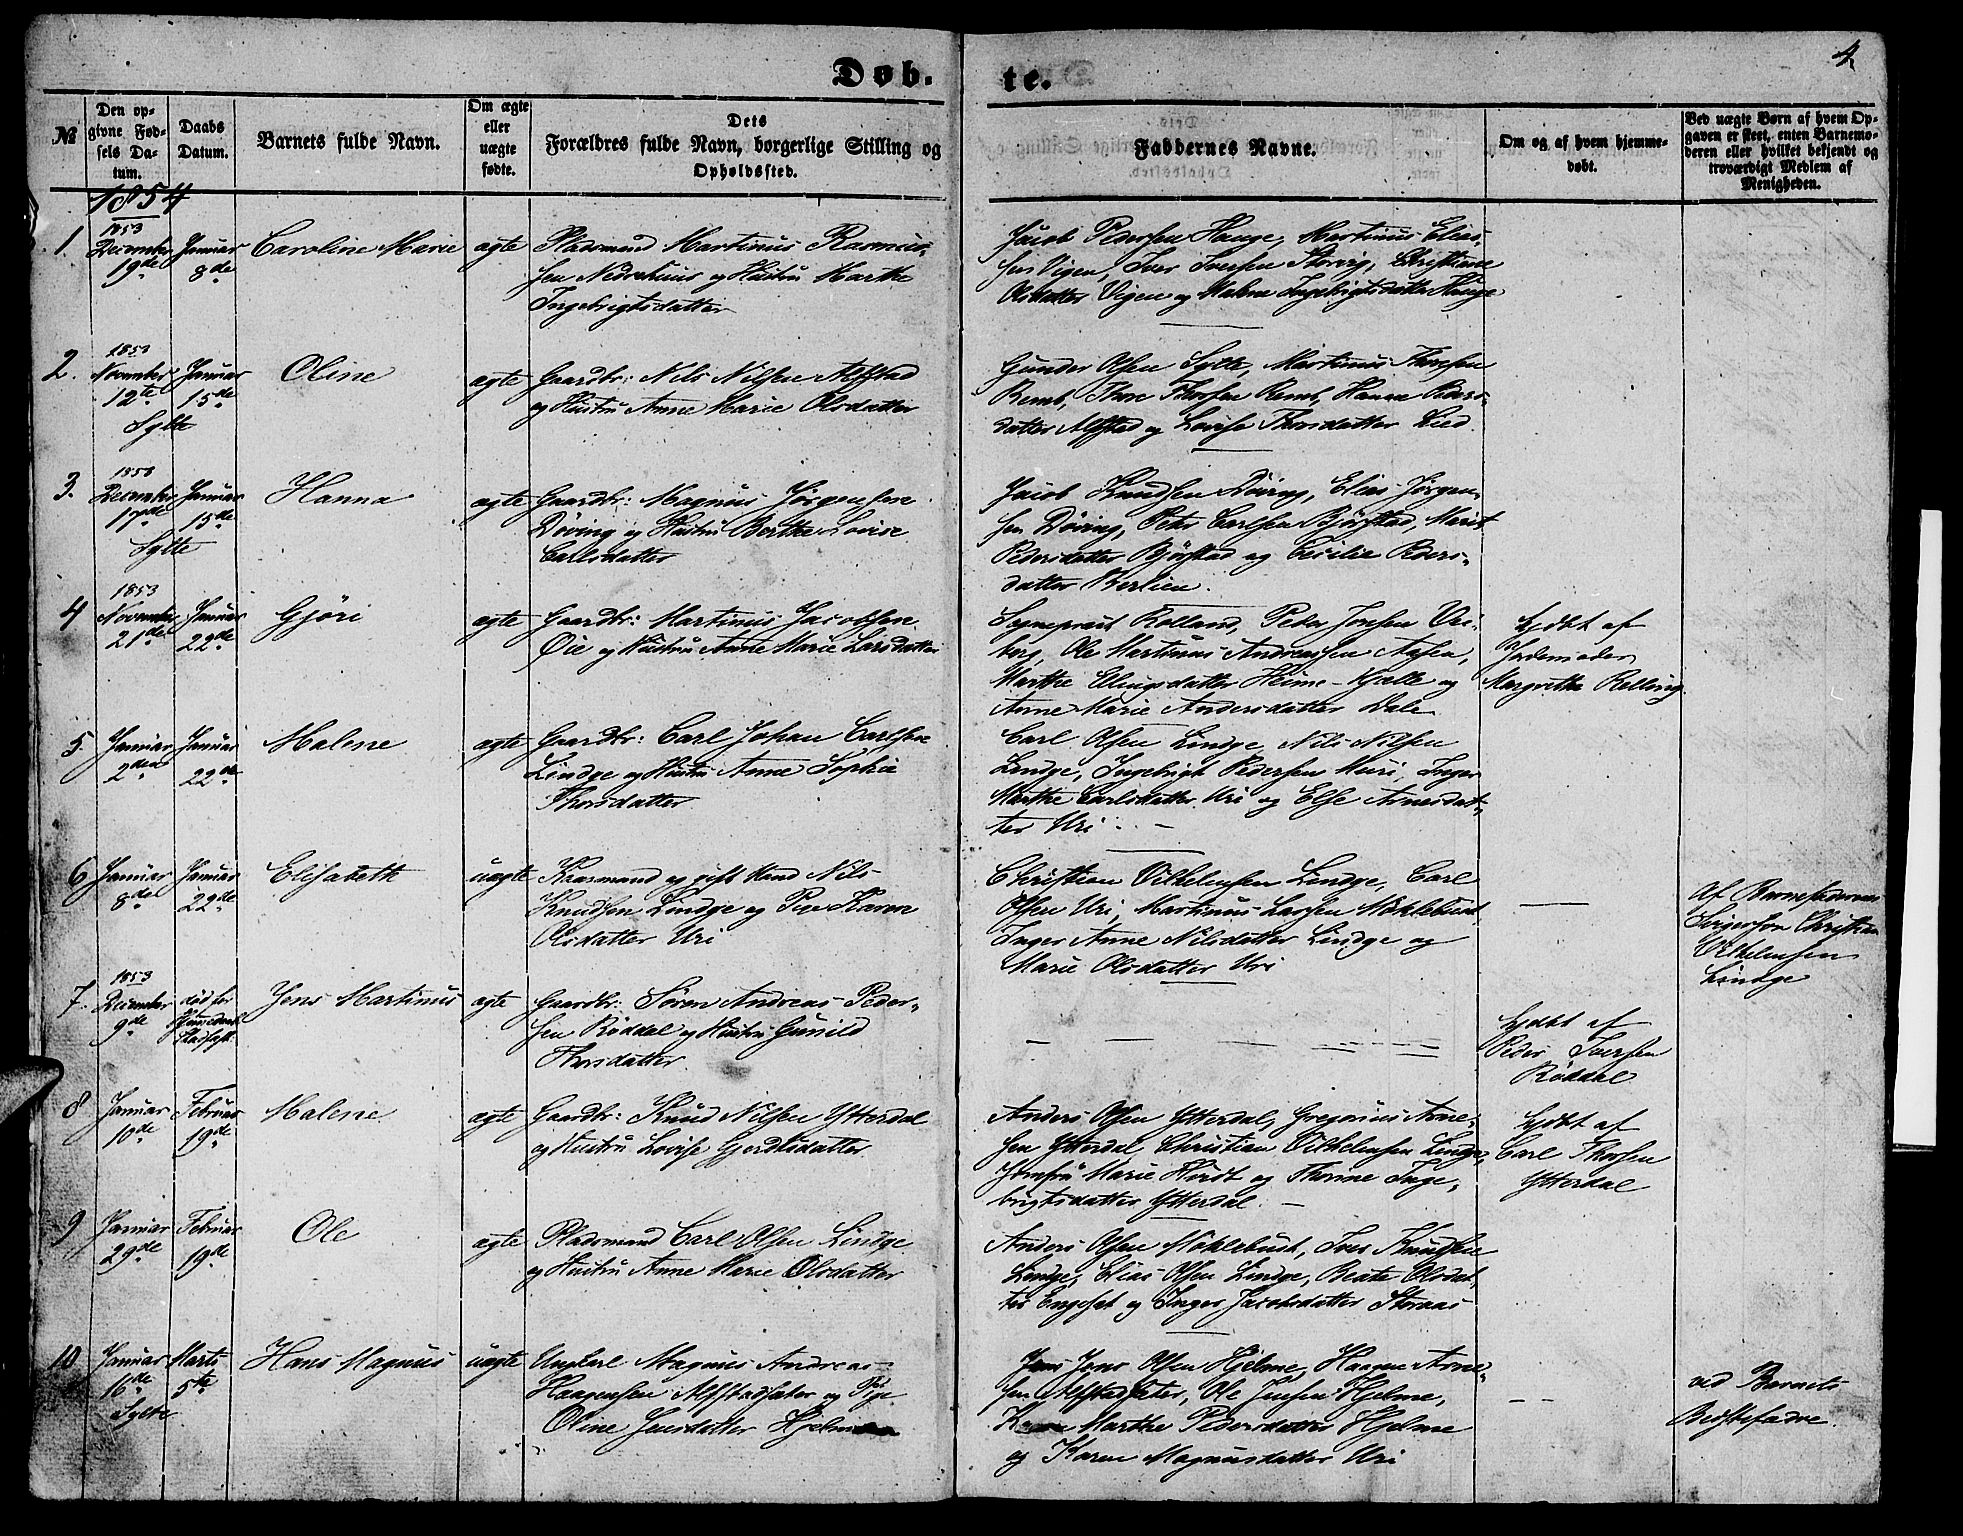 Døb. te.
4
№
Den opgivne Fødsels Datum.
Daabs Datum.
Barnets fulde Navn.
Om ægte eller uægte fødte.
Dets Forældres fulde Navn, borgerlige Stilling og Opholdssted.
Faddernes Navne.
Om og af hvem hjemmedøbt.
Ved uægte Børn af hvem Opgaven er skeet, enten Barnemoderen eller hvilket bekjendt og troværdigt Medlem af Menigheden.
1854
1.
1853
December
19de
Januar
8de
Caroline Marie
ægte
Pladsmand Martinus Rasmus-
sen Nedrehuus og Hustru Marthe
Ingebrigtsdatter
Jacob Pedersen Hauge, Martinus Elias-
sen Vigen, Iver Iversen Storvig, Christiane
Olsdatter Vigen og Malene Ingebrigtsdatter Hauge
2.
1853
November
12te
Sylte
Januar
15de
Oline
ægte
Gaardbr: Nils Nilsen Alfstad
og Hustru Anne Marie Olsdatter
Gunder Olsen Sylte, Martinus Thorsen
Remb, Thore Thorsen Remb, Hanna Peders-
datter Alfstad og Lovise Thorsdatter Lied.
3.
1853
December
17de
Sylte
Januar
15de
Hanna
ægte
Gaardbr: Magnus Jørgensen
Døving og Hustru Berthe Lovise
Carlsdatter
Jacob Knudsen Døving, Elias Jørgen-
sen Døving, Peter Carlsen Bjørstad, Marit
Pedersdatter Bjørstad og Cecilia Peders-
datter Berlien.
4
1853
November
21de
Januar
22de
Gjøri
ægte
Gaardbr: Martinus Jacobsen
Øie og Hustru Anne Marie Larsdatter
Sognepræst Rolland, Peder Jonsen Vi-
borg, Ole Martinus Andreassen Aasen,
Marthe Ellingsdatter Heime-Kjelle og
Anne Marie Andersdatter Dale
hjdbt af
Jordemoder
Margrethe Relling
5
Januar
2den
Januar
22de
Malene
ægte
Gaardbr: Carl Johan Carlsen
Lindge og Hustru Anne Sophie
Thorsdatter
Carl Olsen Lindge, Nils Nilsen
Lindge, Ingebrigt Pedersen Muri, Inger
Marthe Carlsdatter Uri og Else Arnesdat-
ter Uri
6
Januar
8de
Januar
22de
Elisabeth
uægte
Kaarmand og gift Mand Nils
Knudsen Lindge og Pige Karen
Olsdatter Uri
Christian Vilhelmsen Lindge, Carl
Olsen Uri, Martinus Larsen Møklebust
Inger Anne Nilsdatter Lindge og
Marie Olsdatter Uri
Af Barnefaderens
Svigersøn Christian
Vilhelmsen
Lindge
7.
1853
December
9de
død før
Stadfæst.
Jens Martinus
ægte
Gaardbr: Søren Andreas Peder-
sen Røddal og Hustru Gunild
Thorsdatter
hjdbt af
Peder Iversen
Røddal
8
Januar
10de
Februar
19de
Malene
ægte
Gaardbr: Knud Nilsen Ytterdal
og Hustru Lovise Gjerdtsdatter
Anders Olsen Ytterdal, Gregorius Arne-
sen Ytterdal, Christian Vilhelmsen Lindge,
Jomfru Marie Hirdt og Thorine Inge-
brigtsdatter Ytterdal.
hjdbt af
Carl Thorsen
Ytterdal
9
Januar
29de
Februar
19de
Ole
ægte
Pladsmand Carl Olsen Lindge
og Hustru Anne Marie Olsdatter
Anders Olsen Møklebust, Iver Knudsen
Lindge, Elias Olsen Lindge, Beate Olsdat-
ter Engeset og Inger Jacobsdatter Storaas
10
Januar
16de
Sylte
Marts
5te
Hans Magnus
uægte
Ungkarl Magnus Andreas
Haagensen Alfstadsæter og Pige
Oline Jensdatter Hjelme
Jens Olsen Hjelme, Haagen Arne-
sen Alfstadsæter, Ole Jensen Hjelme,
Marthe Pedersdatter Hjelme
og Karen Magnusdatter Uri
ved Barnets
Bedstefader.